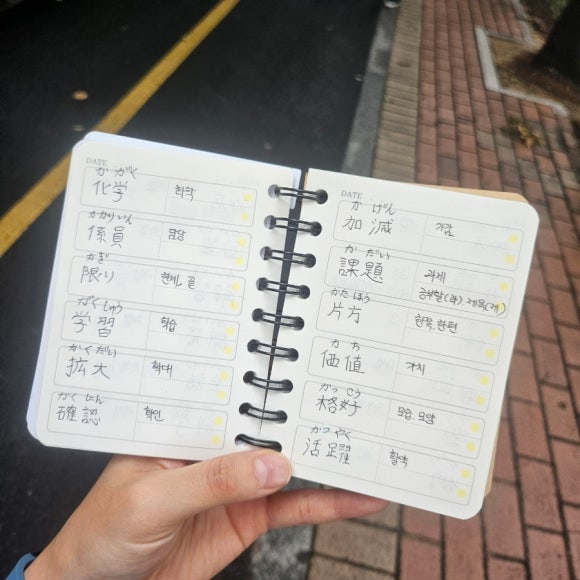 DATE
かがく
化学 화학
かかりいん
係員 담당
かぎ
限り 한계, 끝
がくしゅう
学習 학습
かくだい
拡大 확대
かくにん
確認 확인
DATE
かげん
加減 가감
かだい
課題 과제
공부할(과) 제목(제)
かたほう
片方 한쪽, 한편
かち
価値 가치
かっこう
格好 모습, 모양
かつやく
活躍 활약